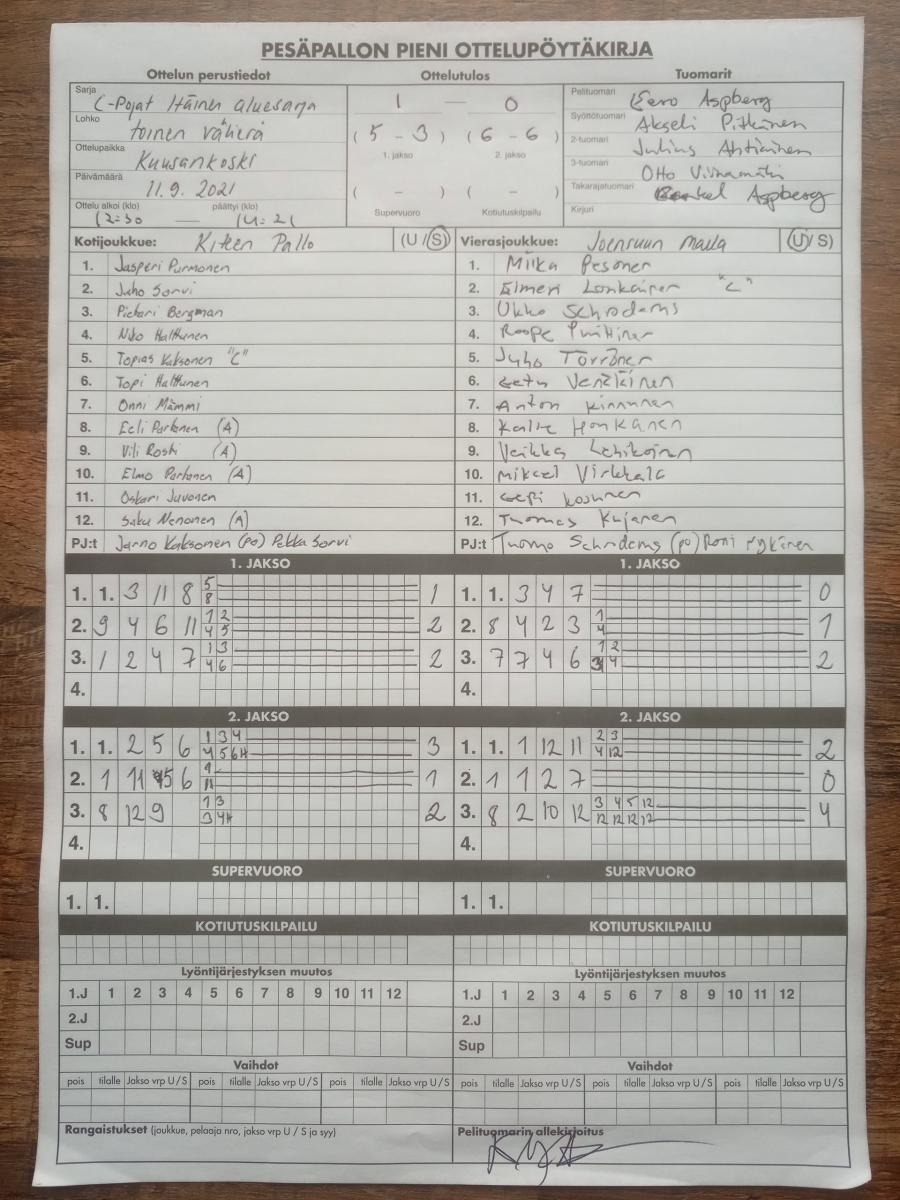 PESÄPALLON PIENI OTTELUPÖYTÄKIRJA
Ottelun perustiedot Ottelutulos Tuomarit
Sarja C-Pojat Itäinen aluesarja
Lohko toinen vaihe
Ottelupaikka Kuusankoski
Päivämäärä 11.9. 2021
Ottelu alkoi (klo) 12:30 — päättyi (klo) 14:21
1 — 0
(5 - 3) (6 - 6)
1. jakso 2. jakso
( - ) ( - )
Supervuoro Kotiutuskilpailu
Pelituomari Eero Aspberg
Syöttötuomari Akseli Pitkänen
2-tuomari Julius Ahtiainen
3-tuomari Otto
Takarajatuomari Aspberg
Kirjuri
Kotijoukkue: Kiteen Pallo (U / S)
1. Jasperi Purmonen
2. Juho Sorvi
3. Pietari Bergman
4. Niko Halttunen
5. Topias Kaksonen "C"
6. Topi Halttunen
7. Onni Mämmi
8. Eeli Partanen (A)
9. Vili Roski (A)
10. Elmo Partanen (A)
11. Oskari Juvonen
12. Saku Nenonen (A)
PJ:t Jarno Kaksonen (po) Pekka Sorvi
Vierasjoukkue: Joensuun Maila (U / S)
1. Miika Pesonen
2. Elmeri Lonkainen "C"
3. Ukko Schroderus
4. Roope
5. Juho Torrönen
6. Eetu
7. Anton Kinnunen
8. Kalle Honkanen
9. Veikka Lehikoinen
10. Mikael Virkkala
11. Kosunen
12. Tuomas Kujanen
PJ:t Tuomo Schroderus (po) Roni Nykänen
1. JAKSO
1. 1. 3 11 8 5 8 1
2. 9 4 6 11 1 2 4 5 2
3. 1 2 4 7 1 3 4 6 2
4.
1. JAKSO
1. 1. 3 4 7 0
2. 8 4 2 3 1 4 1
3. 7 7 4 6 1 2 4 2
4.
2. JAKSO
1. 1. 2 5 6 1 3 4 4 5 6H 3
2. 1 11 5 6 11 1
3. 8 12 9 1 3 3 4H 2
4.
2. JAKSO
1. 1. 1 12 11 2 3 4 12 2
2. 1 1 2 7 0
3. 8 2 10 12 3 4 5 12 12 12 12 12 4
4.
SUPERVUORO SUPERVUORO
1. 1. 1. 1.
KOTIUTUSKILPAILU KOTIUTUSKILPAILU
Lyöntijärjestyksen muutos Lyöntijärjestyksen muutos
1.J 1 2 3 4 5 6 7 8 9 10 11 12 1.J 1 2 3 4 5 6 7 8 9 10 11 12
2.J 2.J
Sup Sup
Vaihdot Vaihdot
pois tilalle Jakso vrp U / S pois tilalle Jakso vrp U / S pois tilalle Jakso vrp U / S pois tilalle Jakso vrp U / S pois tilalle Jakso vrp U / S pois tilalle Jakso vrp U / S
Rangaistukset (joukkue, pelaaja nro, jakso vrp U / S ja syy) Pelituomarin allekirjoitus